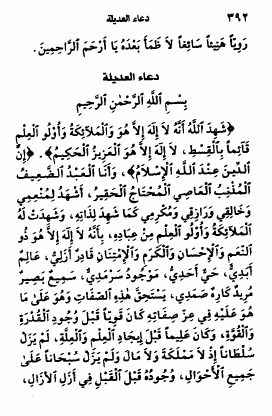 دعاء العديلة ٣٩٢
رَوِيّاً هَنِيئاً سَائِغاً لاَ ظَمَأَ بَعْدَهُ يَا أَرْحَمَ الرَّاحِمِينَ.
دعاء العديلة
بِسْمِ اللَّهِ الرَّحْمٰنِ الرَّحِيْمِ
﴿شَهِدَ اللَّهُ أَنَّهُ لاَ إِلَهَ إِلاَّ هُوَ وَالْمَلاَئِكَةُ وَأُوْلُو الْعِلْمِ
قَائِماً بِالْقِسْطِ، لاَ إِلَهَ إِلاَّ هُوَ الْعَزِيزُ الْحَكِيمُ﴾. ﴿إِنَّ
الدِّينَ عِنْدَ اللَّهِ الْإِسْلاَمُ﴾، وَأَنَا الْعَبْدُ الضَّعِيفُ
الْمُذْنِبُ الْعَاصِي الْمُحْتَاجُ الْحَقِيرُ، أَشْهَدُ لِمُنْعِمِي
وَخَالِقِي وَرَازِقِي وَمُكْرِمِي كَمَا شَهِدَ لِذَاتِهِ، وَشَهِدَتْ لَهُ
الْمَلاَئِكَةُ وَأُوْلُو الْعِلْمِ مِنْ عِبَادِهِ، بِأَنَّهُ لاَ إِلَهَ إِلاَّ هُوَ ذُو
النِّعَمِ وَالْإِحْسَانِ وَالْكَرَمِ وَالْاِمْتِنَانِ قَادِرٌ أَزَلِيٌّ، عَالِمٌ
أَبَدِيٌّ، حَيٌّ أَحَدِيٌّ، مَوْجُودٌ سَرْمَدِيٌّ، سَمِيعٌ بَصِيرٌ
مُرِيدٌ كَارِهٌ صَمَدِيٌّ، يَسْتَحِقُّ هَذِهِ الصِّفَاتِ وَهُوَ عَلَىٰ مَا
هُوَ عَلَيْهِ فِي عِزِّ صِفَاتِهِ كَانَ قَوِيّاً قَبْلَ وُجُودِ الْقُدْرَةِ
وَالْقُوَّةِ، وَكَانَ عَلِيماً قَبْلَ إِيجَادِ الْعِلْمِ وَالْعِلَّةِ، لَمْ يَزَلْ
سُلْطَاناً إِذْ لاَ مَمْلَكَةَ وَلاَ مَالَ وَلَمْ يَزَلْ سُبْحَاناً عَلَىٰ
جَمِيعِ الْأَحْوَالِ، وُجُودُهُ قَبْلَ الْقَبْلِ فِي أَزَلِ الآزَالِ،